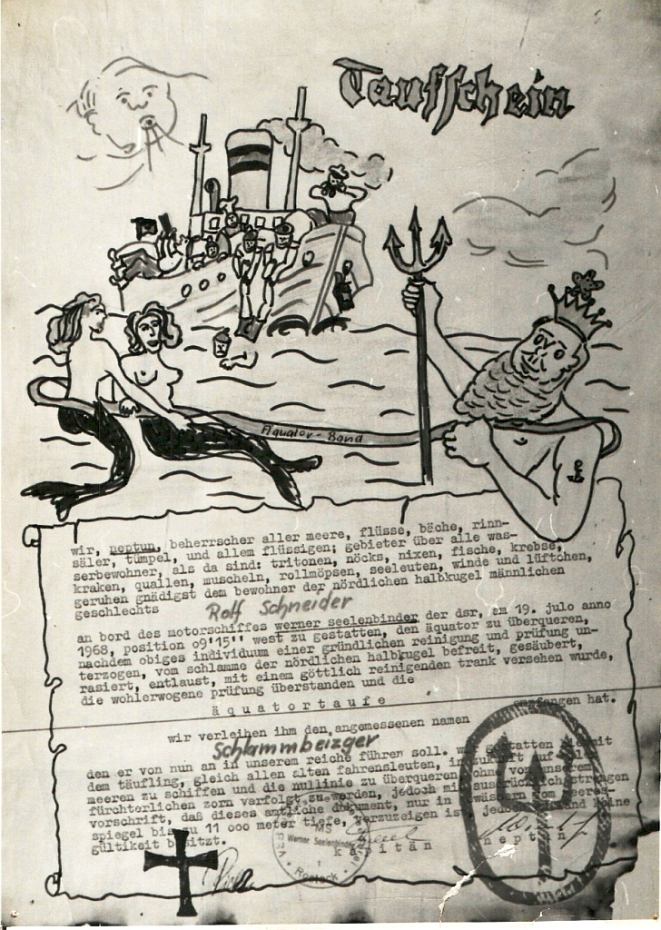 Taufschein
Äquator-Band
wir, neptun, beherrscher aller meere, flüsse, bäche, rinn-
säler, tümpel, und allem flüssigen; gebieter über alle was-
serbewohner, als da sind: tritonen, nöcks, nixen, fische, krebse,
kraken, quallen, muscheln, rollmöpsen, seeleuten, winde und lüftchen,
geruhen gnädigst dem bewohner der nördlichen halbkugel männlichen
geschlechts Rolf Schneider
an bord des motorschiffes werner seelenbinder der dsr, am 19. julo anno
1968, position 09'15'' west zu gestatten, den äquator zu überqueren,
nachdem obiges individuum einer gründlichen reinigung und prüfung un-
terzogen, vom schlamme der nördlichen halbkugel befreit, gesäubert,
rasiert, entlaust, mit einem göttlich reinigenden trank versehen wurde,
die wohlerwogene prüfung überstanden und die
äquatortaufe
empfangen hat.
wir verleihen ihm den angemessenen namen
Schlammbeizger
den er von nun an in unserem reiche führen soll. wir gestatten hiermit
dem täufling, gleich allen alten fahrensleuten, in zukunft
meeren zu schiffen und die nullinie zu überqueren ohne von unserem
fürchterlichen zorn verfolgt zu werden, jedoch mit
vorschrift, daß dieses amtliche dokument, nur in gewässern vom meeres-
spiegel bis zu 11 000 meter tiefe, vorzuzeigen ist, jedoch keine
gültikeit besitzt.
MS
Werner Seelenbinder
Rostock
kapitän
neptun